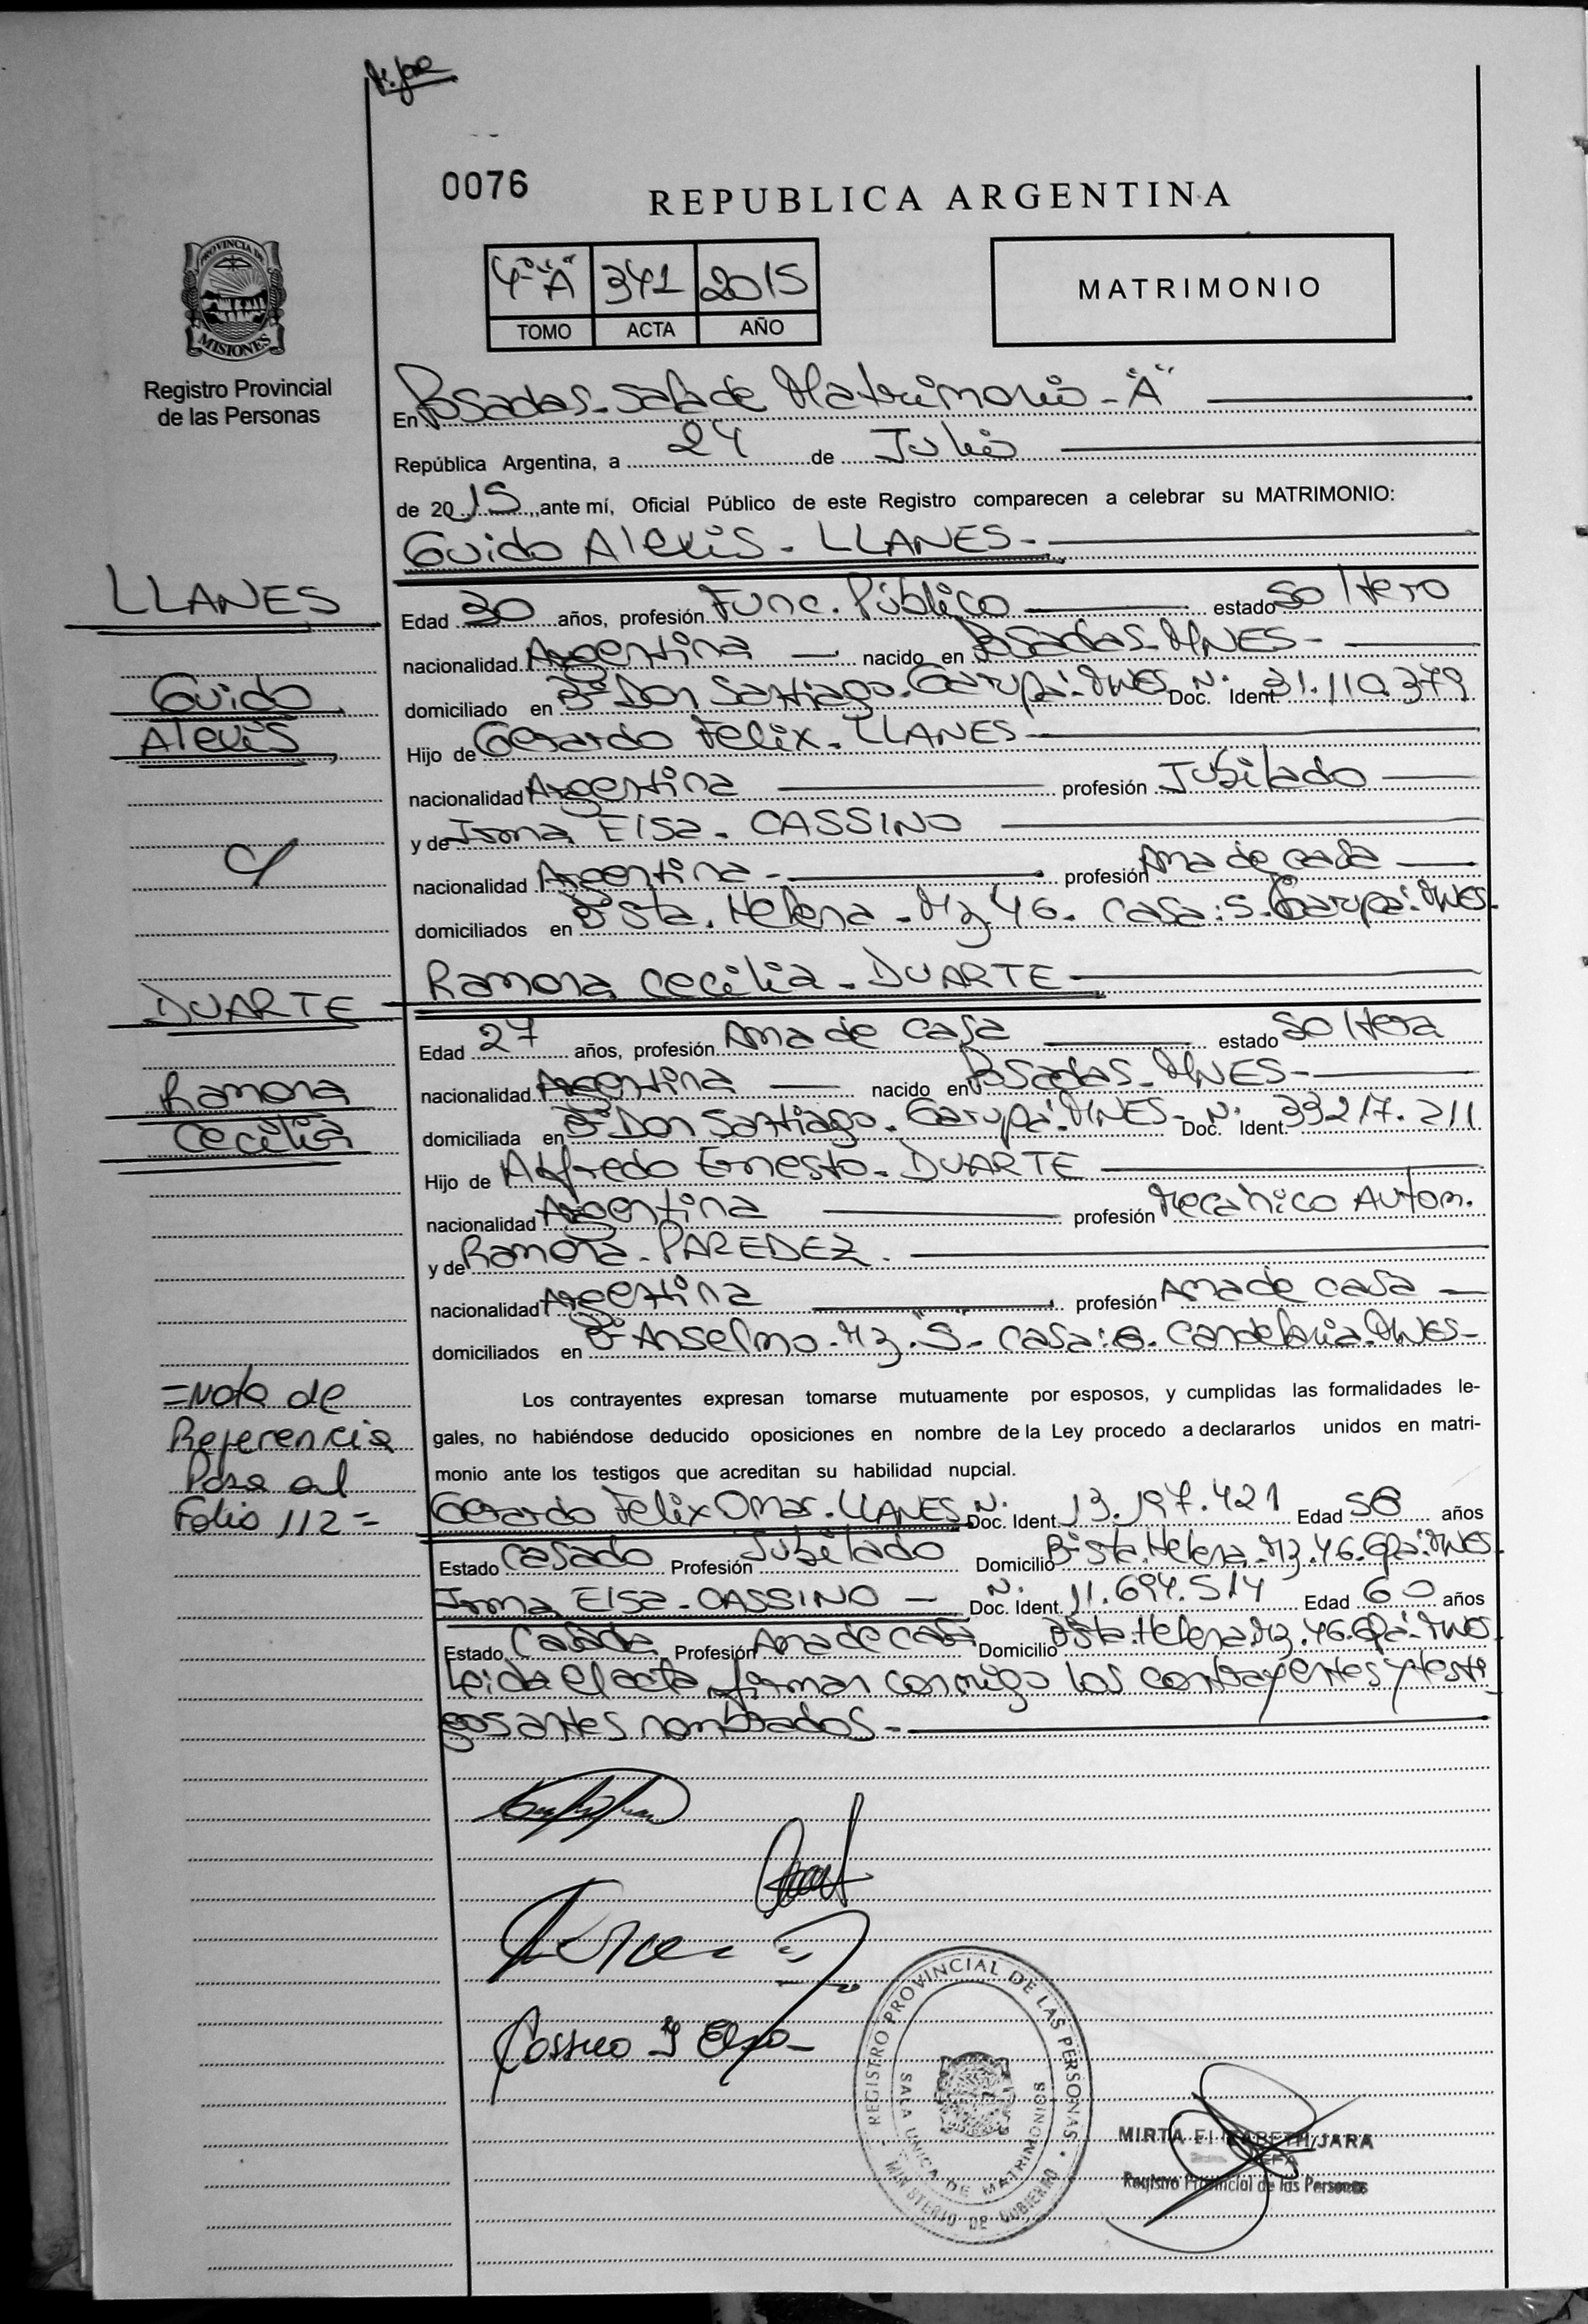 0076
REPUBLICA ARGENTINA
4º "A" 341 2015
TOMO ACTA AÑO
MATRIMONIO
PROVINCIA DE MISIONES
Registro Provincial
de las Personas
En Posadas - Sala de Matrimonio - "A"
República Argentina, a 24 de Julio
de 2015, ante mí, Oficial Público de este Registro comparecen a celebrar su MATRIMONIO:
Guido Alexis - LLANES -
LLANES
Guido
Alexis
c/
DUARTE
Ramona
Cecilia
Edad 30 años, profesión Func. Público estado Soltero
nacionalidad Argentina nacido en Posadas - MNES -
domiciliado en Bº Don Santiago - Garupá - MNES Nº Doc. Ident. 31.110.379
Hijo de Gerardo Felix - LLANES
nacionalidad Argentina profesión Jubilado
y de Irma Elsa - CASSINO
nacionalidad Argentina - profesión Ama de casa
domiciliados en Bº Sta. Helena - Mz. 46 - casa: 5 - Garupá - MNES -
Ramona Cecilia - DUARTE
Edad 27 años, profesión Ama de casa estado Soltera
nacionalidad Argentina nacido en Posadas - MNES -
domiciliada en Bº Don Santiago - Garupá - MNES - Nº Doc. Ident. 33217.211
Hijo de Alfredo Ernesto - DUARTE
nacionalidad Argentina profesión Mecánico Autom.
y de Ramona - PAREDEZ.
nacionalidad Argentina profesión Ama de casa
domiciliados en Bº Anselmo - Mz. "S" - casa: - Candelaria - MNES -
= Nota de
Referencia
Pasa al
Folio 112 =
Los contrayentes expresan tomarse mutuamente por esposos, y cumplidas las formalidades le-
gales, no habiéndose deducido oposiciones en nombre de la Ley procedo a declararlos unidos en matri-
monio ante los testigos que acreditan su habilidad nupcial.
Gerardo Felix Omar - LLANES Nº Doc. Ident. 13.197.421 Edad 58 años
Estado casado Profesión Jubilado Domicilio Bº Sta. Helena - Mz. 46 - Gpá - MNES -
Irma Elsa - CASSINO - Nº Doc. Ident. 11.694.514 Edad 60 años
Estado Casada Profesión Ama de casa Domicilio Bº Sta. Helena - Mz. 46 - Gpá - MNES -
Leida el acta, firman conmigo los contrayentes y testi-
gos antes nombrados -
Cassino I Elsa
REGISTRO PROVINCIAL DE LAS PERSONAS
SALA UNICA DE MATRIMONIOS
MINISTERIO DE GOBIERNO
MIRTA ELIZABETH JARA
JEFA
Registro Provincial de las Personas